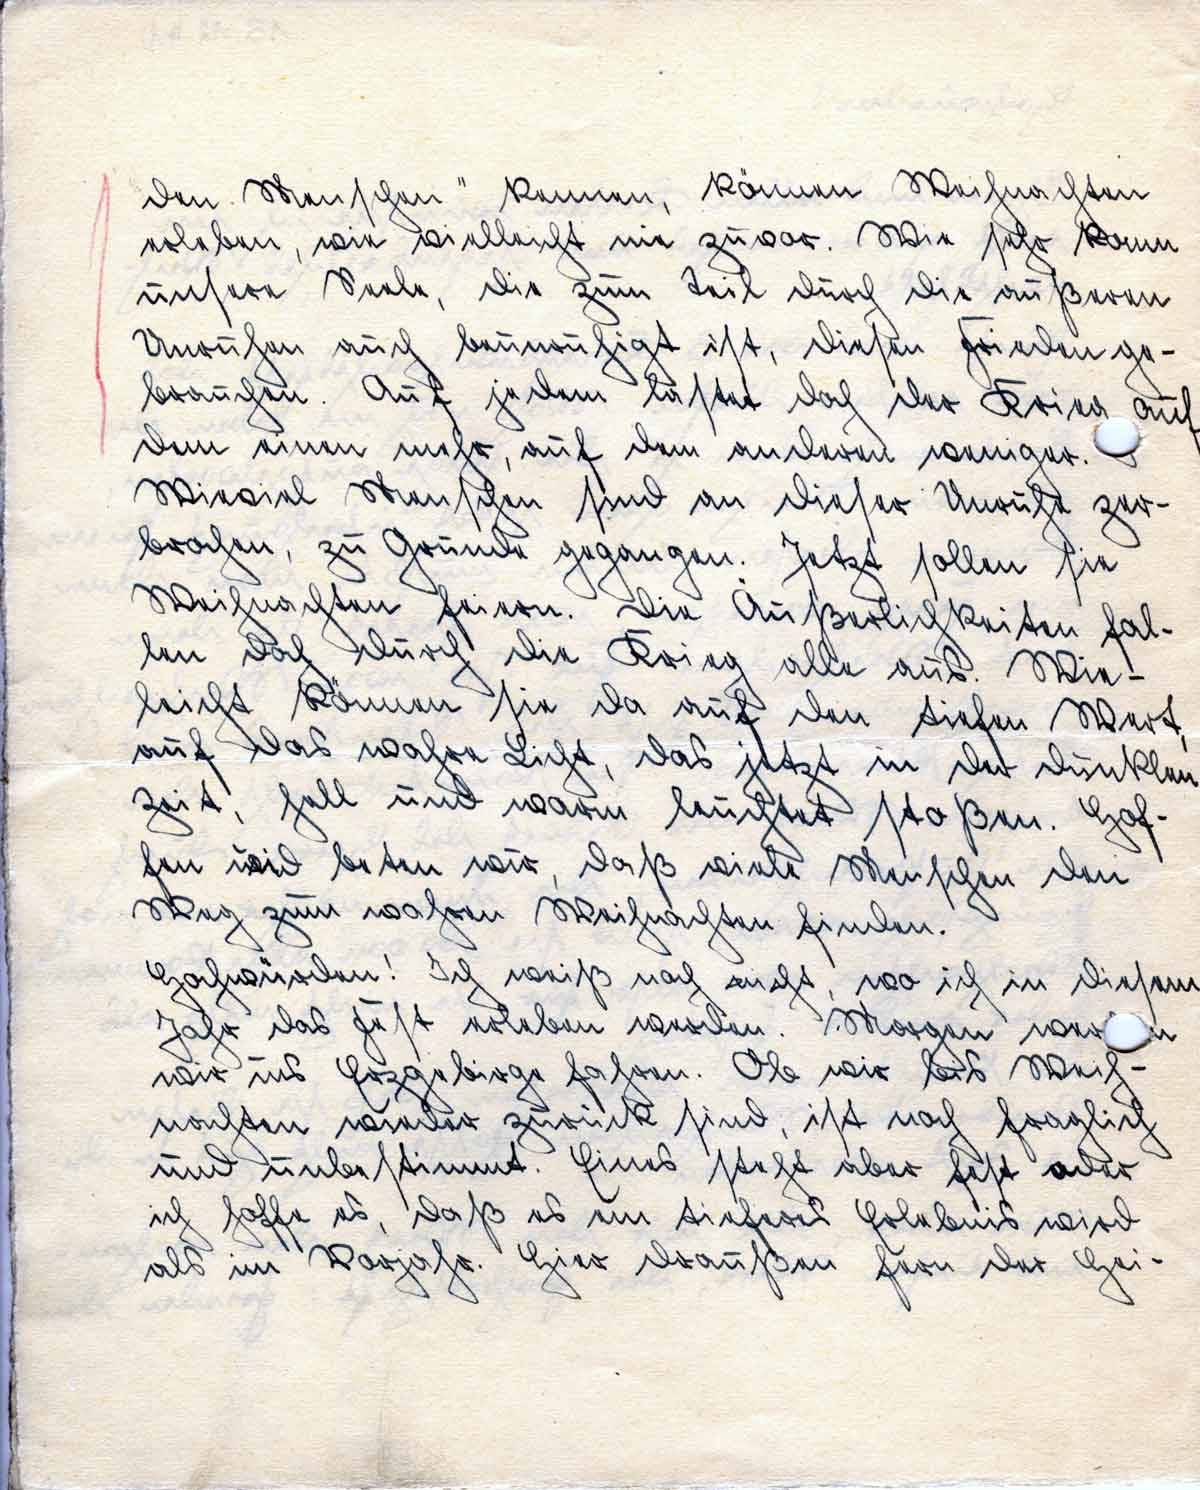 den Menschen" kennen, können Weihnachten
erleben, wie vielleicht nie zuvor. Wie sehr kann
unsere Seele, die zum Teil durch die äußeren
Unruhen auch beunruhigt ist, diesen Frieden ge-
brauchen. Auf jedem lastet doch der Krieg auf
dem einen mehr, auf dem anderen weniger.
Wieviel Menschen sind an dieser Unruhe zer-
brochen, zu Grunde gegangen. Jetzt sollen sie
Weihnachten feiern. Die Äußerlichkeiten fal-
len doch durch die Krieg alle aus. Vie-
leicht können sie da auf den tiefen Wert,
auf das wahre Licht, das jetzt in der dunklen
Zeit, hell und warm leuchtet stoßen. Hof-
fen und beten wir, daß viele Menschen den
Weg zum wahren Weihnachten finden.
Hochwürden! Ich weiß noch nicht, wo ich in diesem
Jahr das Fest erleben werden. Morgen werden
wir ins Erzgebirge fahren. Ob wir bis Weih-
nachten wieder zurück sind, ist noch fraglich
und unbestimmt. Eines steht aber fest oder
ich hoffe es, daß es ein tieferes Erlebnis wird
als im Vorjahr. Hier draußen fern der Hei-